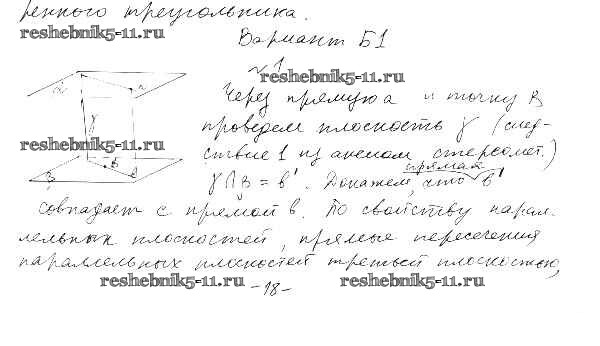 ренного треугольника.
reshebnik5-11.ru
Вариант Б1
№1
reshebnik5-11.ru
Через прямую а и точку В
проведем плоскость γ (след-
reshebnik5-11.ru
ствие 1 из аксиом стереомет.)
прямая
γ ∩ β = b'. Докажем, что b'
совпадает с прямой b. По свойству парал-
лельных плоскостей, прямые пересечения
параллельных плоскостей третьей плоскостью,
reshebnik5-11.ru
-18-
reshebnik5-11.ru